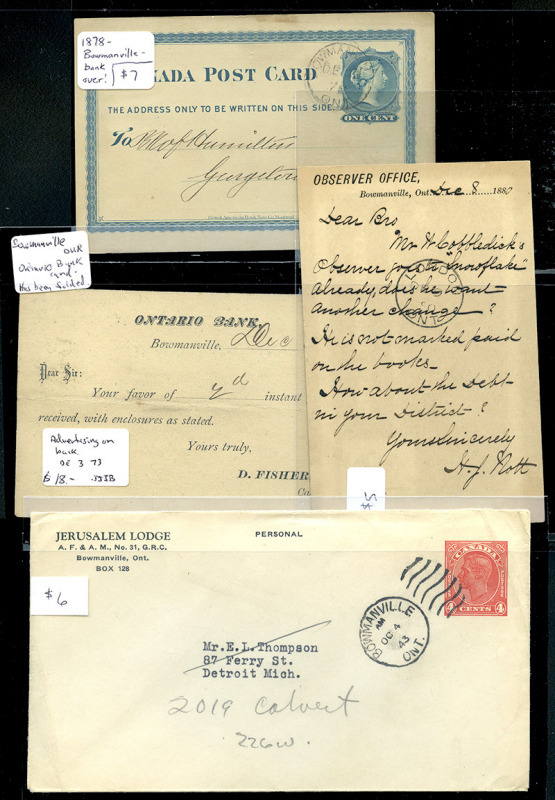 1878-
Bowmanville-
bank
over! $7
CANADA POST CARD
THE ADDRESS ONLY TO BE WRITTEN ON THIS SIDE
To Hamilton
Georgetown
ONE CENT
BOWMAN
ONT
OBSERVER OFFICE,
Bowmanville, Ont. Dec 8 1880
Dear Bro
Mr W Cobbledick's
Observer goes to "Snowflake"
already, does he want
another change?
He is not marked paid
on the books-
How about the Debt
in your District?
Yours Sincerely
ONT
Bowmanville
Ontario Bank
card
Has been folded
ONTARIO BANK,
Bowmanville, Dec
Dear Sir:
Your favor of 2d instant
received, with enclosures as stated.
Yours truly,
D. FISHER
Advertising on
back
DE 3 73
$18.-
JERUSALEM LODGE
A. F. & A. M., No. 31, G.R.C.
Bowmanville, Ont.
BOX 128
PERSONAL
$6
CANADA
4 CENTS 4
BOWMANVILLE
AM
OC 4
43
ONT.
Mr. E. L. Thompson
87 Ferry St.
Detroit Mich.
2019 Calvert
226w.